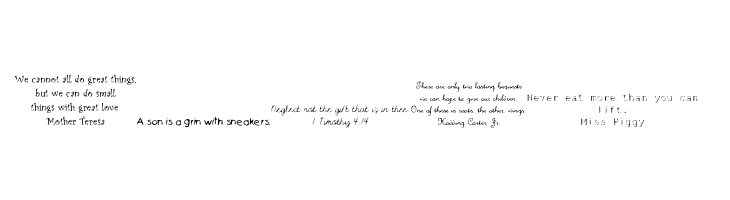 We cannot all do great things,
but we can do small
things with great love.
Mother Teresa
A son is a grin with sneakers.
Neglect not the gift that is in thee.
1 Timothy 4:14
There are only two lasting bequests
we can hope to give our children.
One of these is roots, the other, wings.
Hodding Carter, Jr.
Never eat more than you can
lift.
Miss Piggy